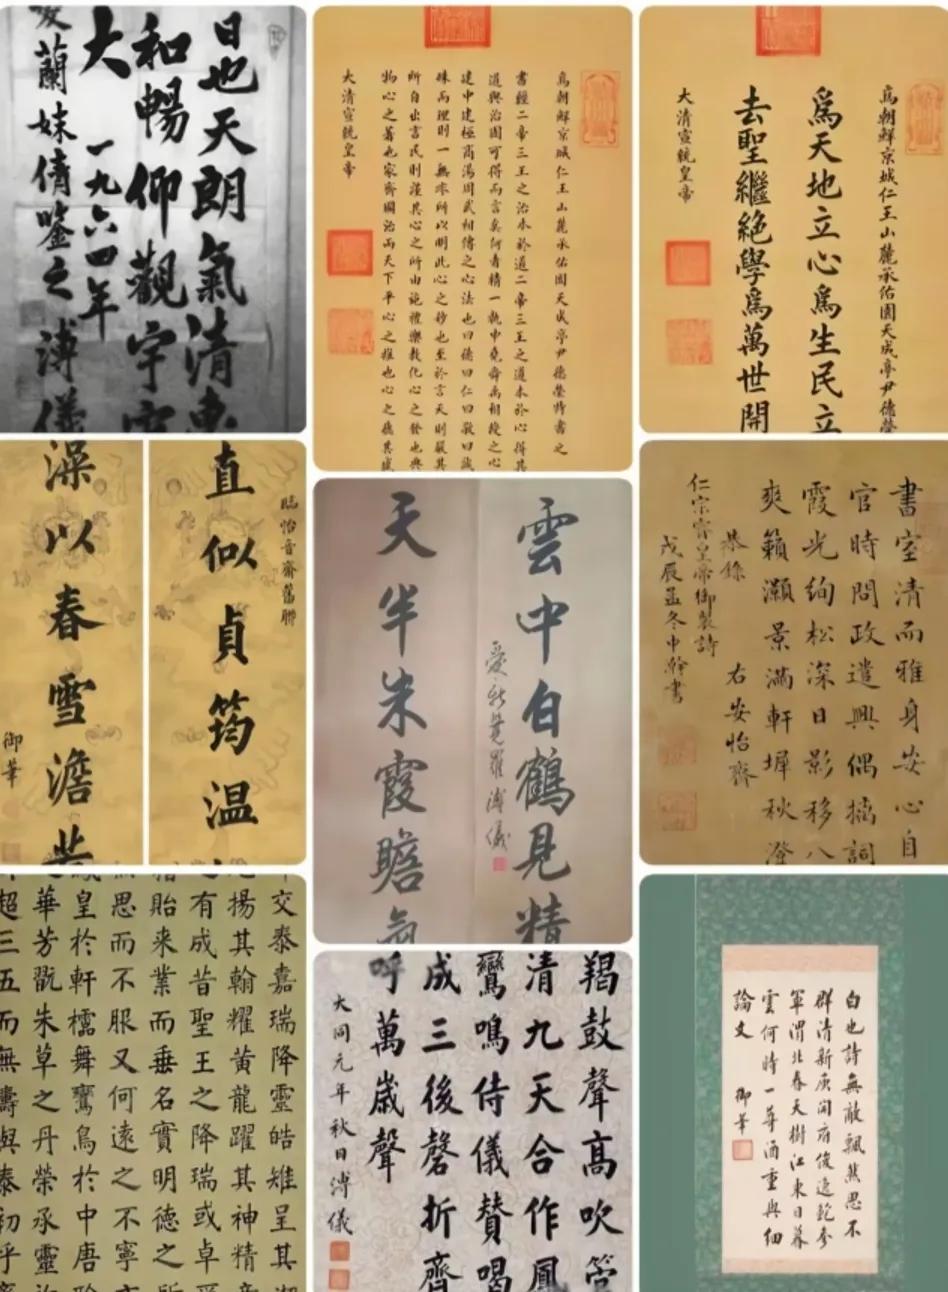 日也天朗氣清惠
和暢仰觀宇宙
大
一九六四年
蘭妹倩鑒之溥儀
為朝鮮京城仁王山麓承佑園天成亭尹德榮特書之
書經二帝三王之治本於道二帝三王之道本於心得其
道與治固可得而言矣何者精一執中堯舜禹相授之心
建中建極商湯周武相傳之心法也曰德曰仁曰敬曰誠
殊而理則一無非所以明此心之妙也至於言天則嚴其
所自出言民則謹其心之所由施禮樂教化心之發也典
物心之著也家齊國治而天下平心之推也心之德其盛
大清宣統皇帝
為朝鮮京城仁王山麓承佑園天成亭尹德榮
為天地立心為生民立
去聖繼絕學為萬世開
大清宣統皇帝
臨怡音齋舊聯
直似貞筠溫
澡以春雪澹若
御筆
雲中白鶴見精
天半朱霞瞻氣
愛新覺羅溥儀
書室清而雅身安心自
官時問政遣興偶摛詞
霞光絢松深日影移八
爽籟灝景滿軒墀秋澄
右安怡齋
恭錄
仁宗睿皇帝御製詩
戊辰孟冬中澣書
交泰嘉瑞降靈皓雉呈其
揚其翰耀黃龍躍其神精
有成昔聖王之降瑞或卓
貽來業而垂名實明德之所
思而不服又何遠之不寧
皇於軒檽舞鸞鳥於中唐
華芳翫朱草之丹榮承靈
超三五而無儔與泰初乎
羯鼓聲高吹管
清九天合作鳳
鸞鳴侍儀贊喝
成三後磬折齊
呼萬歲聲
大同元年秋日溥儀
白也詩無敵飄然思不
群清新庾開府俊逸鮑參
軍渭北春天樹江東日暮
雲何時一尊酒重與細
論文
御筆